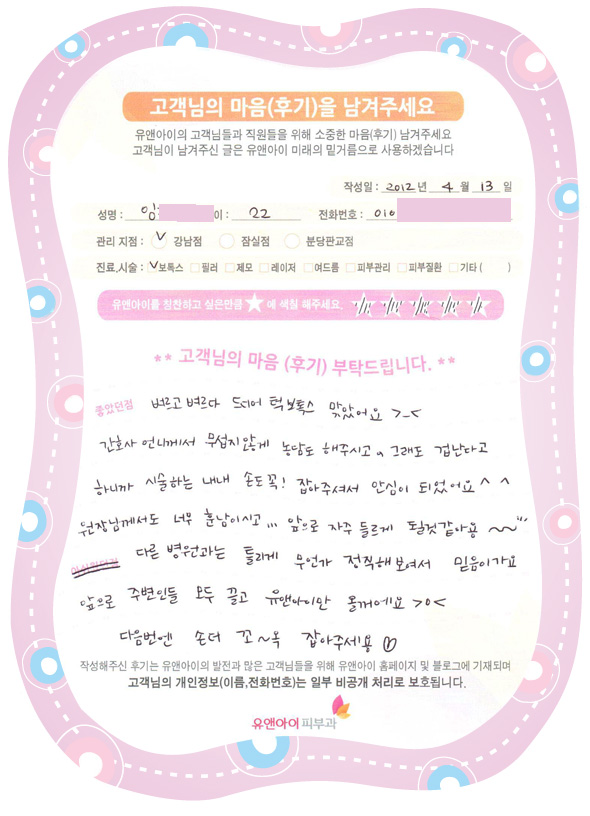 고객님의 마음(후기)을 남겨주세요
유앤아이의 고객님들과 직원들을 위해 소중한 마음(후기) 남겨주세요
고객님이 남겨주신 글은 유앤아이 미래의 밑거름으로 사용하겠습니다
작성일 : 2012년 4월 13일
성명 : 임 이 : 22 전화번호 : 010
관리 지점 : 강남점 잠실점 분당판교점
진료,시술 : 보톡스 필러 제모 레이저 여드름 피부관리 피부질환 기타 ( )
유앤아이를 칭찬하고 싶은만큼 ★ 에 색칠 해주세요.
** 고객님의 마음 (후기) 부탁드립니다. **
좋았던점 벼르고 벼르다 드디어 턱보톡스 맞았어요 >_<
간호사 언니께서 무섭지않게 농담도 해주시고, 그래도 겁난다고
하니까 시술하는 내내 손도 꼭! 잡아주셔서 안심이 되었어요 ^ ^
원장님께서도 너무 훈남이시고... 앞으로 자주 들르게 될것같아용 ~~"'
아쉬웠던점 다른 병원과는 틀리게 무언가 정직해보여서 믿음이가요
앞으로 주변인들 모두 끌고 유앤아이만 올꺼에요 >o<
다음번엔 손더 꼬~옥 잡아주세용 ♡
작성해주신 후기는 유앤아이의 발전과 많은 고객님들을 위해 유앤아이 홈페이지 및 블로그에 기재되며
고객님의 개인정보(이름,전화번호)는 일부 비공개 처리로 보호됩니다.
유앤아이 피부과